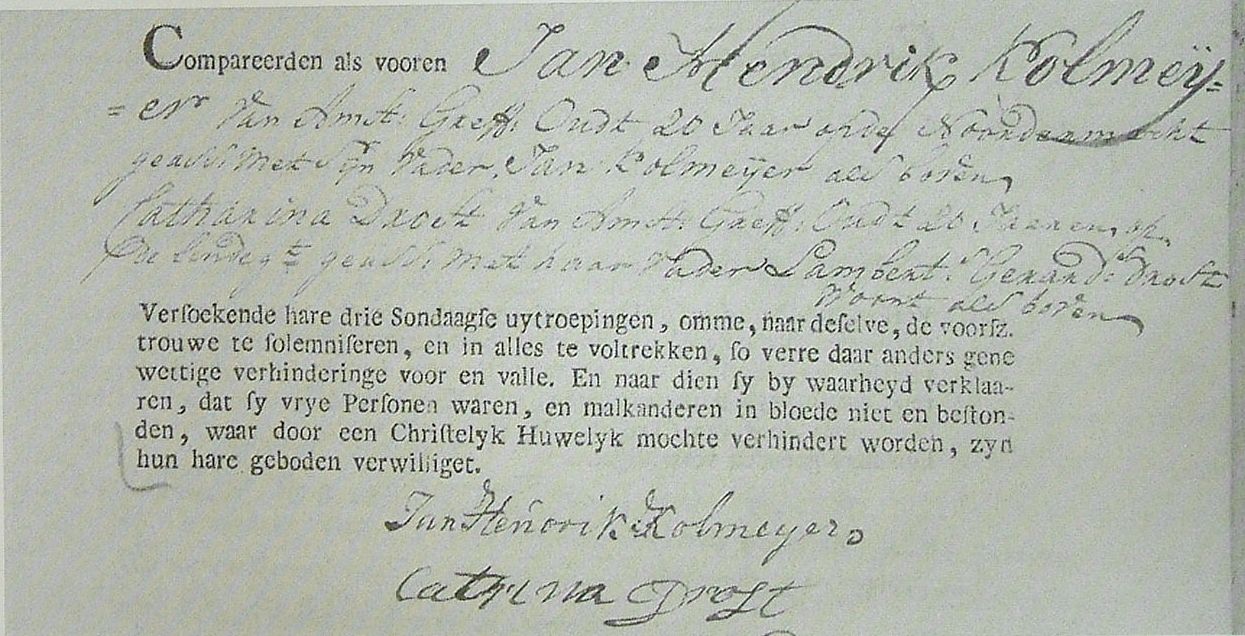 Compareerden als vooren Jan Hendrik Kolmeÿ=
=er Van Amst: Gereff: Oudt 20 Jaar op de Noordermarkt
geass: met sÿn Vader, Jan Kolmeÿer als boven,
Catharina Drost Van Amst: Gereff: Oudt 20 Jaaren, op
De Lindegt geass: met haar Vader Lambert: Gerard: Drost
Woont als boven
Verſoekende hare drie Sondaagſe uytroepingen, omme, naar deſelve, de voorſz.
trouwe te ſolemniſeren, en in alles te voltrekken, ſo verre daar anders gene
wettige verhinderinge voor en valle. En naar dien ſy by waarheyd verklaa-
ren, dat ſy vrye Perſonen waren, en malkanderen in bloede niet en beſton-
den, waar door een Chriſtelyk Huwelyk mochte verhindert worden, zyn
hun hare geboden verwilliget.
Jan Hendrik Kolmeyer
Catrina Drost